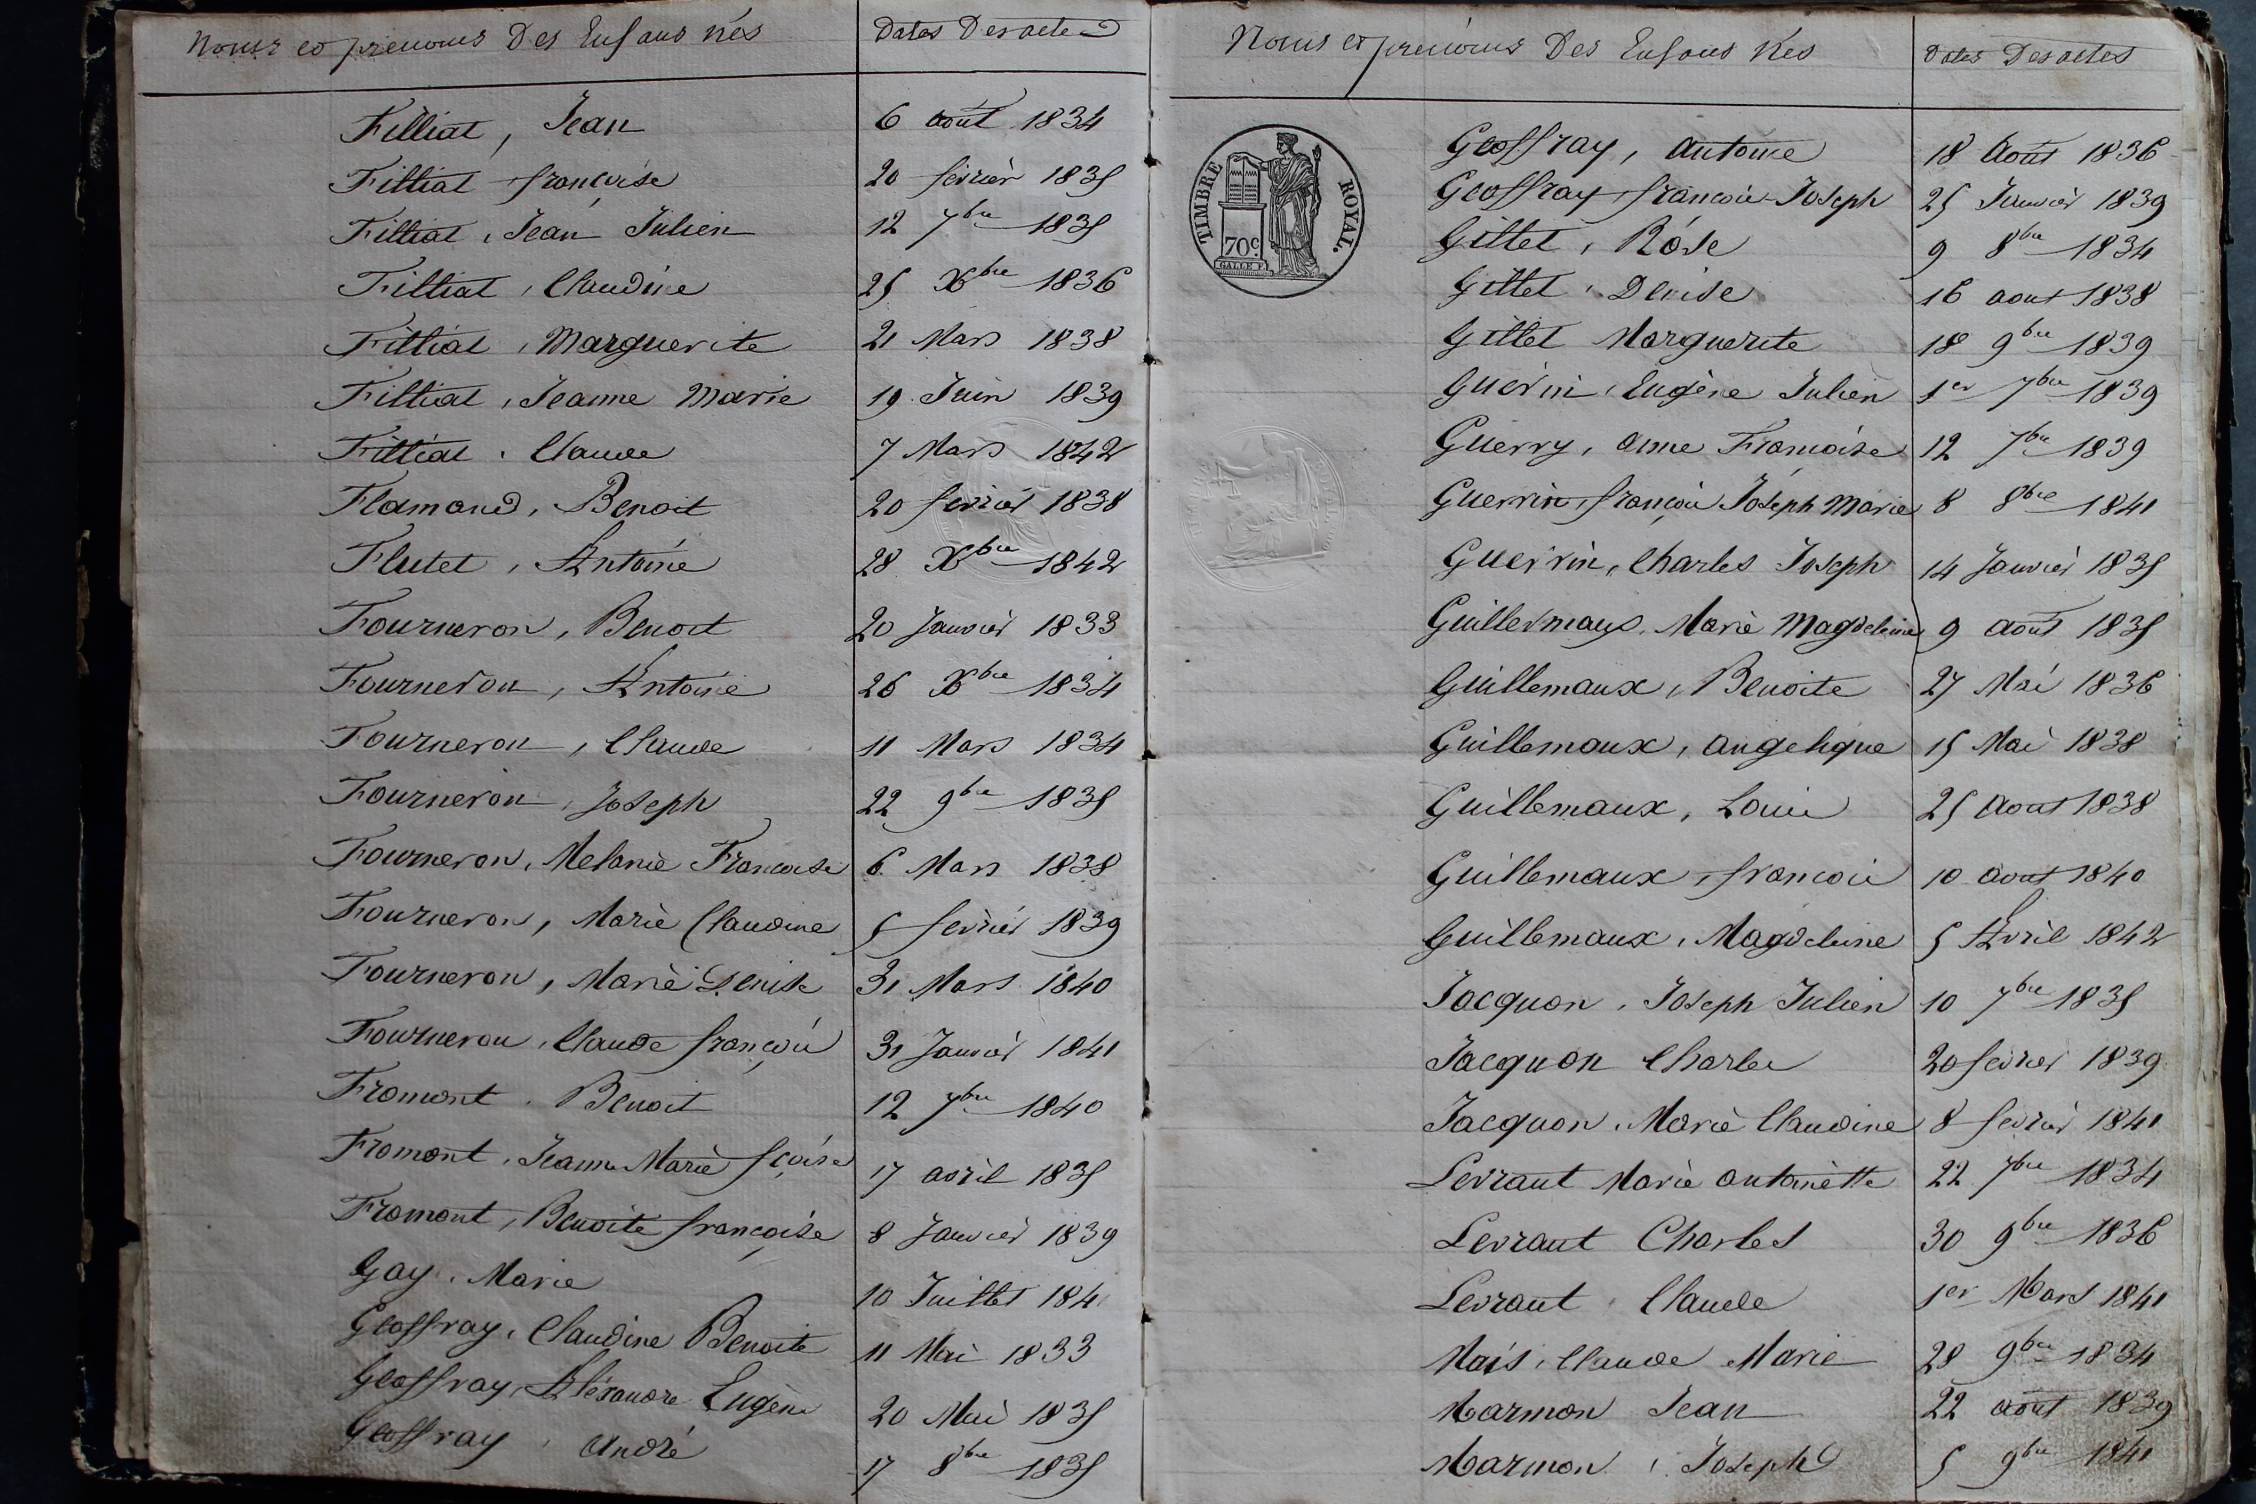 Noms et prenoms Des Enfans nés
Dates Des actes
Filliat, Jean 6 août 1834
Filliat françoise 20 fevrier 1835
Filliat, Jean Julien 12 7bre 1835
Filliat, Claudine 25 Xbre 1836
Filliat, Marguerite 21 Mars 1838
Filliat, Jeanne Marie 19 Juin 1839
Filliat, Claude 7 Mars 1842
Flamand, Benoit 20 fevrier 1838
Flutet, Antoine 28 Xbre 1842
Fourneron, Benoit 20 Janvier 1833
Fourneron, Antoine 26 Xbre 1834
Fourneron, Claude 11 Mars 1834
Fourneron, Joseph 22 9bre 1835
Fourneron, Melanie Francoise 6 Mars 1838
Fourneron, Marie Claudine 5 fevrier 1839
Fourneron, Marie Denise 31 Mars 1840
Fourneron, Claude françois 31 Janvier 1841
Fromont, Benoit 12 7bre 1840
Fromont, Jeanne Marie fçoise 17 avril 1835
Fromont, Benoite françoise 8 Janvier 1839
Gay, Marie 10 Juillet 184
Geoffray, Claudine Benoite 11 Mai 1833
Geoffray, Aléxandre Eugène 20 Mai 1835
Geoffray, André 17 8bre 1835
Noms et prenoms Des Enfans Nés
Dates Des actes
TIMBRE ROYAL.
70c.
Geoffray, antoine 18 Août 1836
Geoffray, francois Joseph 25 Janvier 1839
Gillet, Rose 9 8bre 1834
Gillet, Denise 16 aout 1838
Gillet Marguerite 18 9bre 1839
Guerin, Eugène Julien 1er 7bre 1839
Guerry, anne Francoise 12 7bre 1839
Guerrin, françois Joseph Marie 8 8bre 1841
Guerrin, Charles Joseph 14 Janvier 1835
Guillermaus, Marie Magdeleine 9 août 1835
Guillemaux, Benoite 27 Mai 1836
Guillemaux, angelique 15 Mai 1838
Guillemaux, Louis 25 Aout 1838
Guillemaux, francois 10 aout 1840
Guillemaux, Magdeleine 5 Avril 1842
Jacquon, Joseph Julien 10 7bre 1835
Jacquon Charles 20 fevrier 1839
Jacquon, Marie Claudine 8 fevrier 1841
Levraut Marie antoinètte 22 7bre 1834
Levraut Charles 30 9bre 1836
Levraut, Claude 1er Mars 1841
Maïs, Claude Marie 28 9bre 1834
Marmon Jean 22 août 1839
Marmon, Joseph 5 9bre 1841